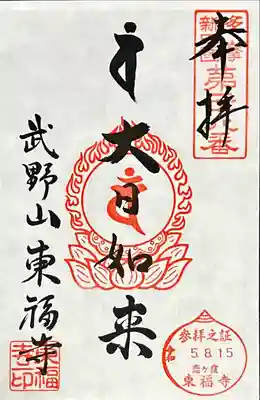 奉拝
多摩
新四国
第
番
大日如来
武野山東福寺
東福
寺印
参拝之証
5.8.15
恋ヶ窪
東福寺